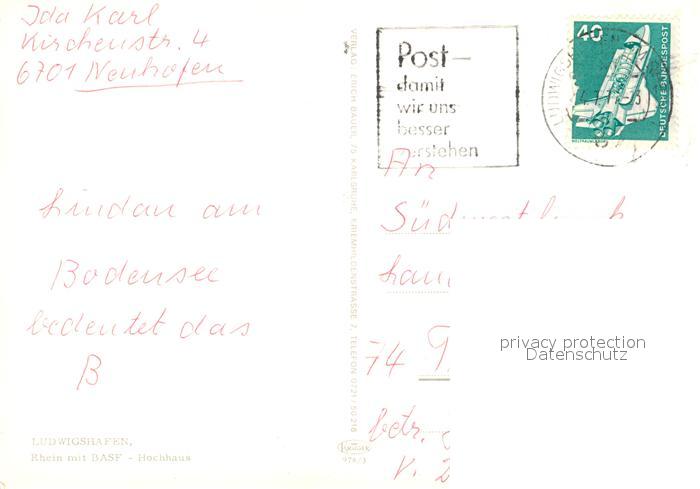 Ida Karl
Kirchenstr. 4
6701 Neuhofen
Lindau am
Bodensee
bedeutet das
B
LUDWIGSHAFEN,
Rhein mit BASF - Hochhaus
VERLAG ERICH BAUER, 75 KARLSRUHE, KRIEMHILDENSTRASSE 7, TELEFON 0721/50216
Post-
damit
wir uns
besser
verstehen
40
DEUTSCHE BUNDESPOST
An
74
betr.
V.
privacy protection
Datenschutz